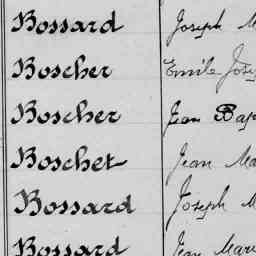 Bossard Joseph M
Boscher Emile Jose
Boscher Jean Bap
Boschet Jean Ma
Bossard Joseph M
Bossard Jean Mari